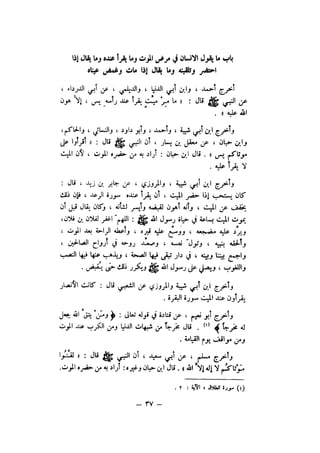 باب ما يقول الانسان في مرض الموت وما يقرأ عنده وما يقال إذا
احتضر وتلقينه وما يقال إذا مات وغمض عيناه
أخرج أحمد ، وابن أبي الدنيا ، والديلمي ، عن أبي الدرداء ،
عن النبي ﷺ قال : « ما من ميّت يقرأ عند رأسه يس ، إلاّ هون
الله عليه » .
وأخرج ابن أبي شيبة ، وأحمد ، وأبو داود ، والنسائي ، والحاكم،
وابن حبان ، عن معقل بن يسار ، أن النبي ﷺ قال : « أقرأوا على
موتاكم يس » . قال ابن حبان : أراد به من حضره الموت ، لأن الميت
لا يقرأ عليه .
وأخرج ابن أبي شيبة ، والمروزي ، عن جابر بن زيد ، قال :
كان يستحب إذا حضر الميت ، أن يقرأ عنده سورة الرعد ، فإن ذلك
يخفف عن الميت ، وأنه أهون لقبضه وأيسر لشأنه ، وكان يقال قبل أن
يموت الميت بساعة في حياة رسول الله ﷺ : اللهمّ اغفر لفلان بن فلان،
وبرّد عليه مضجعه ، ووسّع عليه قبره ، وأعطه الراحة بعد الموت ،
وألحقه بنبيه ، وتولّ نفسه ، وصعّد روحه في أرواح الصالحين ،
واجمع بيننا وبينه ، في دار تبقى فيها الصحة ، ويذهب عنها فيها النصب
واللغوب ، ويصلي على رسول الله ﷺ ويكرر ذلك حتى يُقبض .
وأخرج ابن أبي شيبة والمروزي عن الشعبي قال : كانت الأنصار
يقرأون عند الميت سورة البقرة .
وأخرج أبو نعيم ، عن قتادة في قوله تعالى : ﴿ ومَنْ يتقِ اللهَ يجعل
له مخرجاً ﴾ (١) . قال مخرجاً من شبهات الدنيا ومن الكرب عند الموت
ومن مواقف يوم القيامة .
وأخرج مسلم ، عن أبي سعيد ، أن النبي ﷺ قال : « لقّنُوا
مَوْتاكُم لا إله إلاّ الله » . قال ابن حبان وغيره : أراد به من حضره الموت.
(١) سورة الطلاق ، الآية : ٢ .
— ٣٧ —